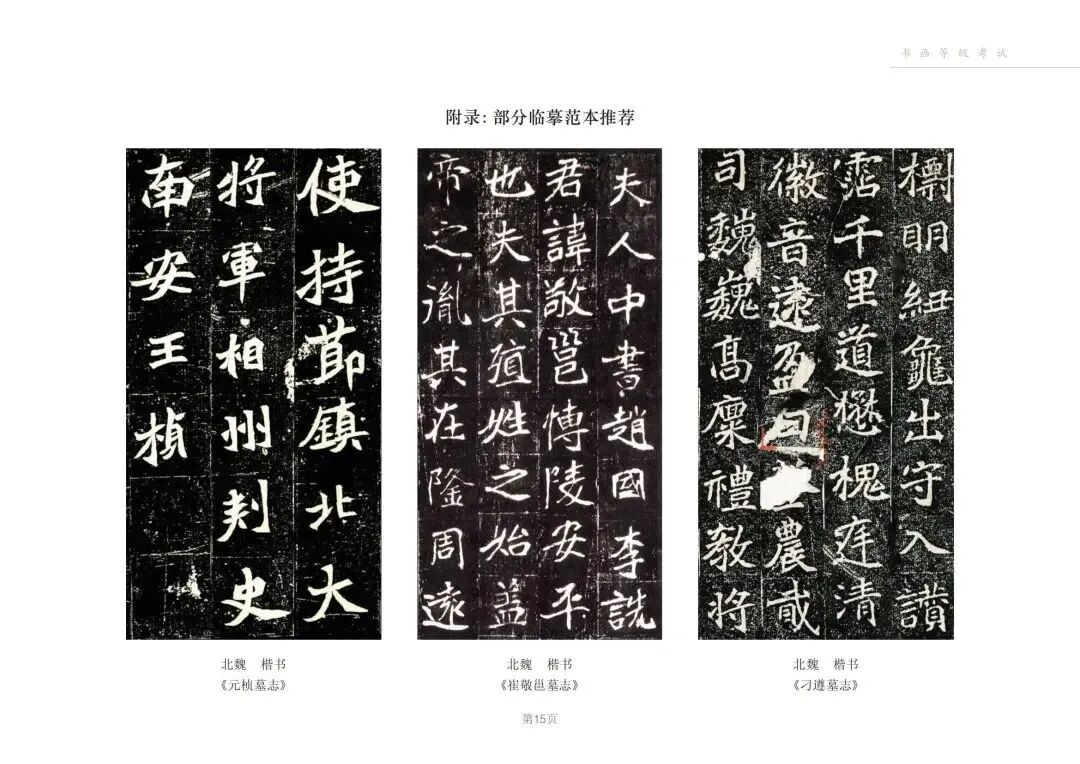 书画等级考试
附录：部分临摹范本推荐
使持節鎮北大
将軍相州刾史
南安王楨
夫人中書趙國李詵
君諱敬邕博陵安平
也夫其殖姓之始蓋
帝之胤其在隆周遠
明紐龜出守入讚
霑千里道懋槐庭清
徽音遠盈曰農
司巍巍高禮教將
北魏 楷书
《元桢墓志》
北魏 楷书
《崔敬邕墓志》
北魏 楷书
《刁遵墓志》
第15页